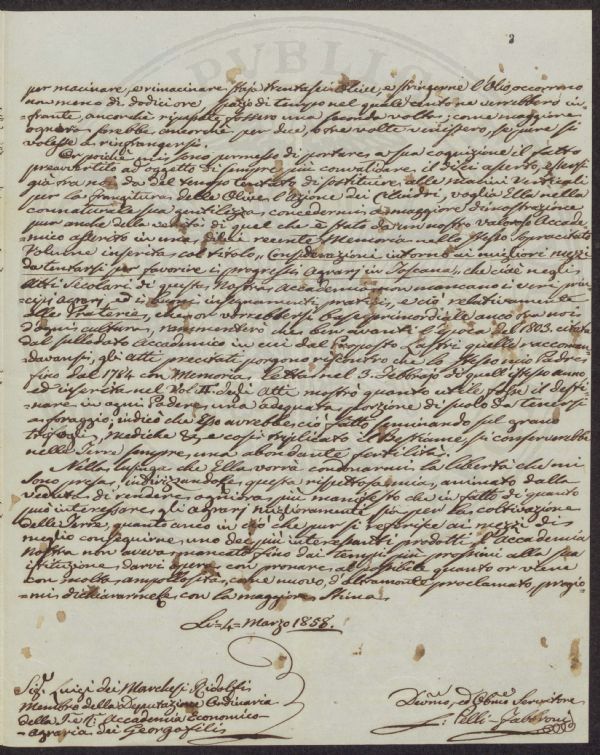 3
PUBLIC
per macinare, e rimacinare staja trentasei Olive, e stringerne l'Olio occorrono
non meno di dodici ore spazio di tempo nel quale anton ne verrebbero in=
=frante, ancorchè ripassate fossero una seconda volta; come maggiore
ognora sarebbe, ancorchè per dieci, o tre volte venissero, se pure si
volesse a rinfrangersi.
Or poichè mi sono permesso di portare a sua cognizione il fatto
preavvertito ad oggetto di sempre più convalidare il di Lei asserto, e
già tra noi da del tempo tentato di sostituire alle macini verticali
per la frangitura delle Olive l'azione dei Cilindri, voglia Ella nella
connaturale sua gentilezza concedermi, a maggiore dimostrazione
pur anche della verità di quel che è stato da un nostro valoroso Accade=
mico asserito in una di lui recente Memoria nello stesso sopracitato
Volume inserita col titolo "Considerazioni intorno ai migliori mezzi
da tentarsi per favorire i progressi Agrarj in Toscana", che cioè negli
Atti Secolari di questa Nostra Accademia non mancano i veri prin=
cipj agrarj, ed i buoni insegnamenti pratici, e ciò relativamente
alle Praterie, che non verrebbersi base primordiale ancora tra noi
d'ogni cultura, rammentero che ben avanti l'época del 1803. citata
dal sullodato Accademico in cui dal Proposto Lastri quelle raccoman=
davansi, gli atti precitati porgono riscontro che lo stesso mio Padre
fino dal 1784 con Memoria, letta nel 3. Febbrajo di quell'istesso anno
ed inserita nel Vol. II. degli Atti mostrò quanto utile fosse il desti=
nare in ogni Podere una adequata porzione di suolo da tenersi
a foraggio, indicò che Esso avrebbe ciò fatto seminando sul grano
trifogli, mediche &, e così triplicato il Bestiame, si conserverebbe
nella Terra sempre una abondante fertilità.
Nella lusinga che Ella vorrà condonarmi la libertà che mi
sono presa, indirizzandole questa rispettosa mia, animato dalla
veduta di rendere ognora più manifesto che in fatto di quanto
può interessare gli agrarj miglioramenti sia per la coltivazione
delle Terre, quanto anco in ciò che pur si referisce ai mezzi di
meglio conseguirne uno dei più interessanti prodotti, l'Accademia
Nostra non aveva mancato fino dai tempi più prossimi alla sua
istituzione, darvi opera con provare al possibile quanto or viene
con molta ampollosità, come nuovo, d'altramonte proclamato, pregio=
=mi dichiararmele con la maggiore Stima
Li =4= Marzo 1858.
Sig.r Luigi dei Marchesi Ridolfi
Membro della Deputazione Ordinaria
della I. e R. Accademia Economico=
=Agraria dei Georgofili
Devmo, ed Obmo Servitore
Pelli-Fabbroni